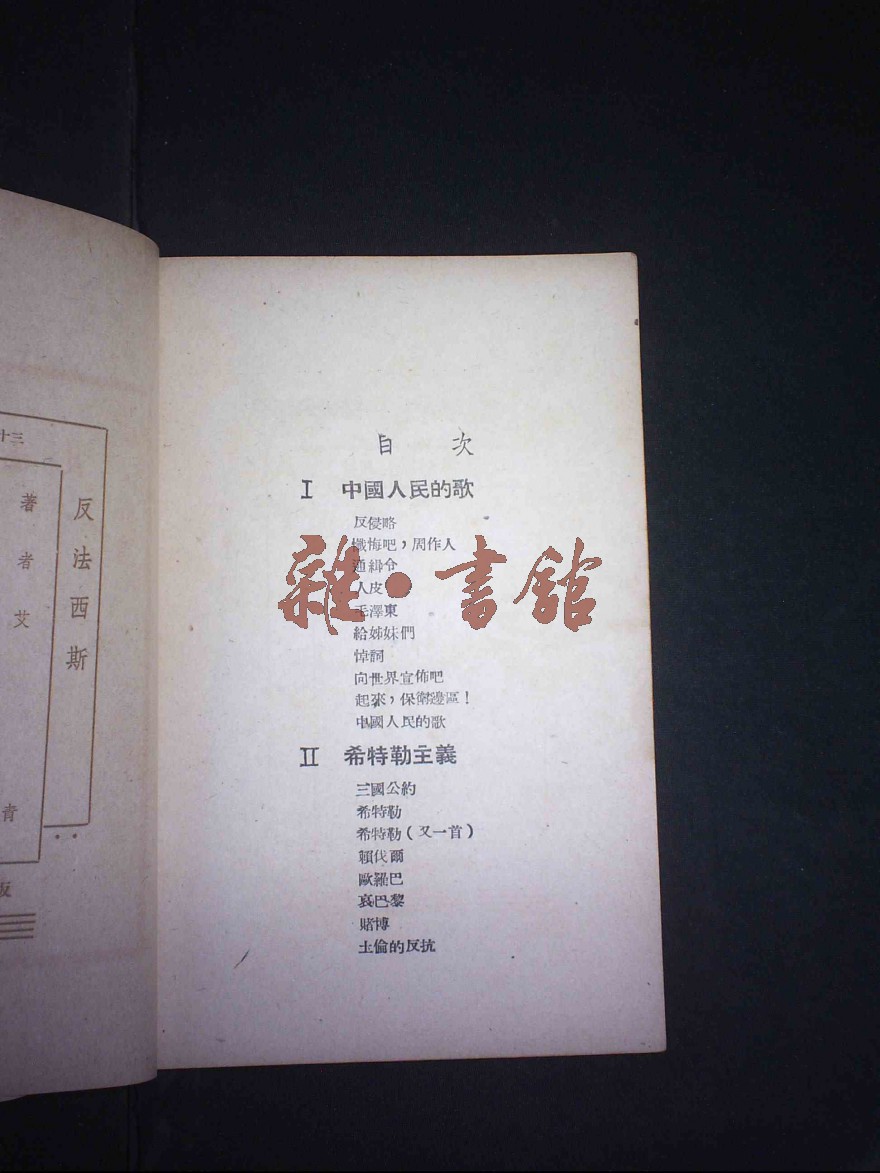 目次
I 中國人民的歌
反侵略
懺悔吧，周作人
通緝令
人皮
毛澤東
給姊妹們
悼詞
向世界宣佈吧
起來，保衛邊區！
中國人民的歌
II 希特勒主義
三國公約
希特勒
希特勒（又一首）
賴伐爾
歐羅巴
哀巴黎
賭博
土倫的反抗
雜·書館
反法西斯
著者艾青
十三
版